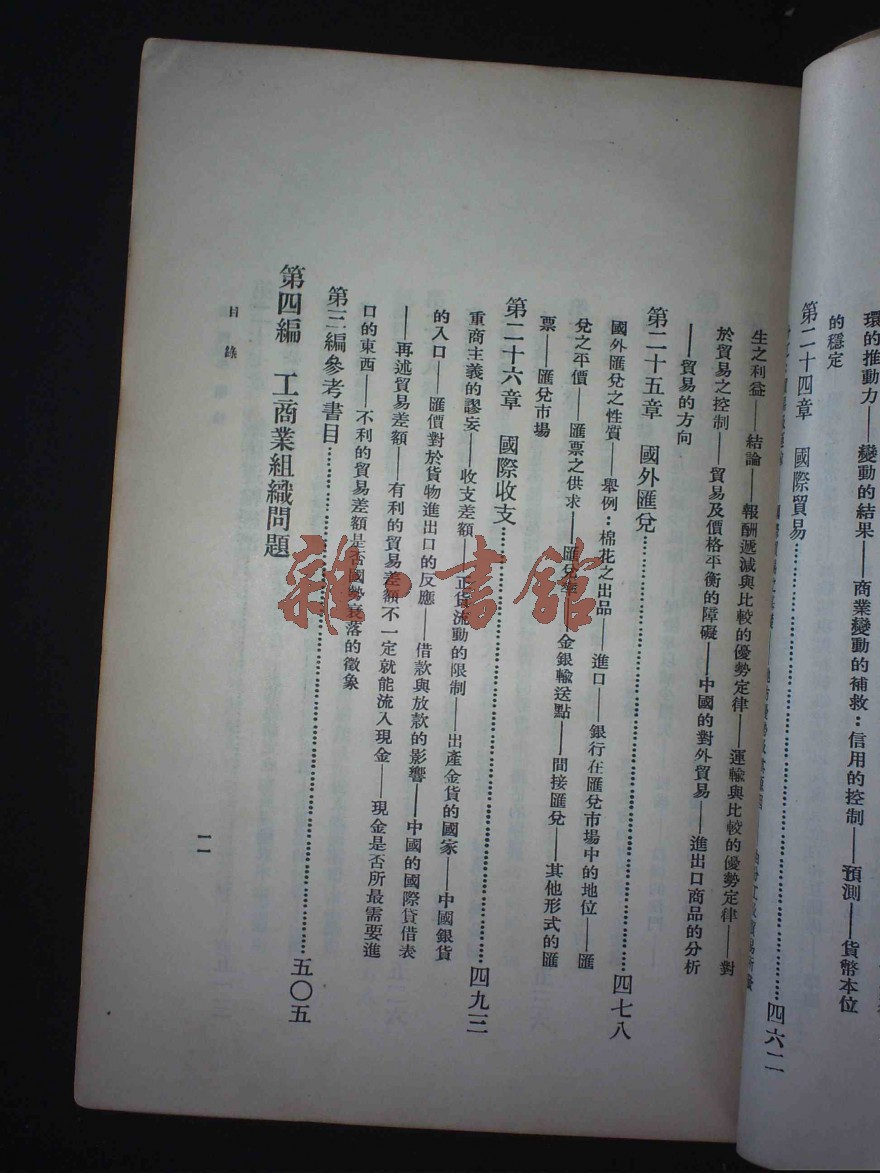 環的推動力——變動的結果——商業變動的補救：信用的控制——預測——貨幣本位
的穩定
第二十四章　國際貿易……四六二
生之利益——結論——報酬遞減與比較的優勢定律——運輸與比較的優勢定律——對
於貿易之控制——貿易及價格平衡的障礙——中國的對外貿易——進出口商品的分析
——貿易的方向
第二十五章　國外匯兌……四七八
國外匯兌之性質——舉例：棉花之出品——進口——銀行在匯兌市場中的地位——匯
兌之平價——匯票之供求——匯兌率——金銀輸送點——間接匯兌——其他形式的匯
票——匯兌市場
第二十六章　國際收支……四九三
重商主義的謬妄——收支差額——正貨流動的限制——出產金貨的國家——中國銀貨
的入口——匯價對於貨物進出口的反應——借款與放款的影響——中國的國際貸借表
——再述貿易差額——有利的貿易差額不一定就能流入現金——現金是否所最需要進
口的東西——不利的貿易差額是否國勢衰落的徵象
第三編參考書目……五〇五
第四編　工商業組織問題
目錄
一一
雜·書館